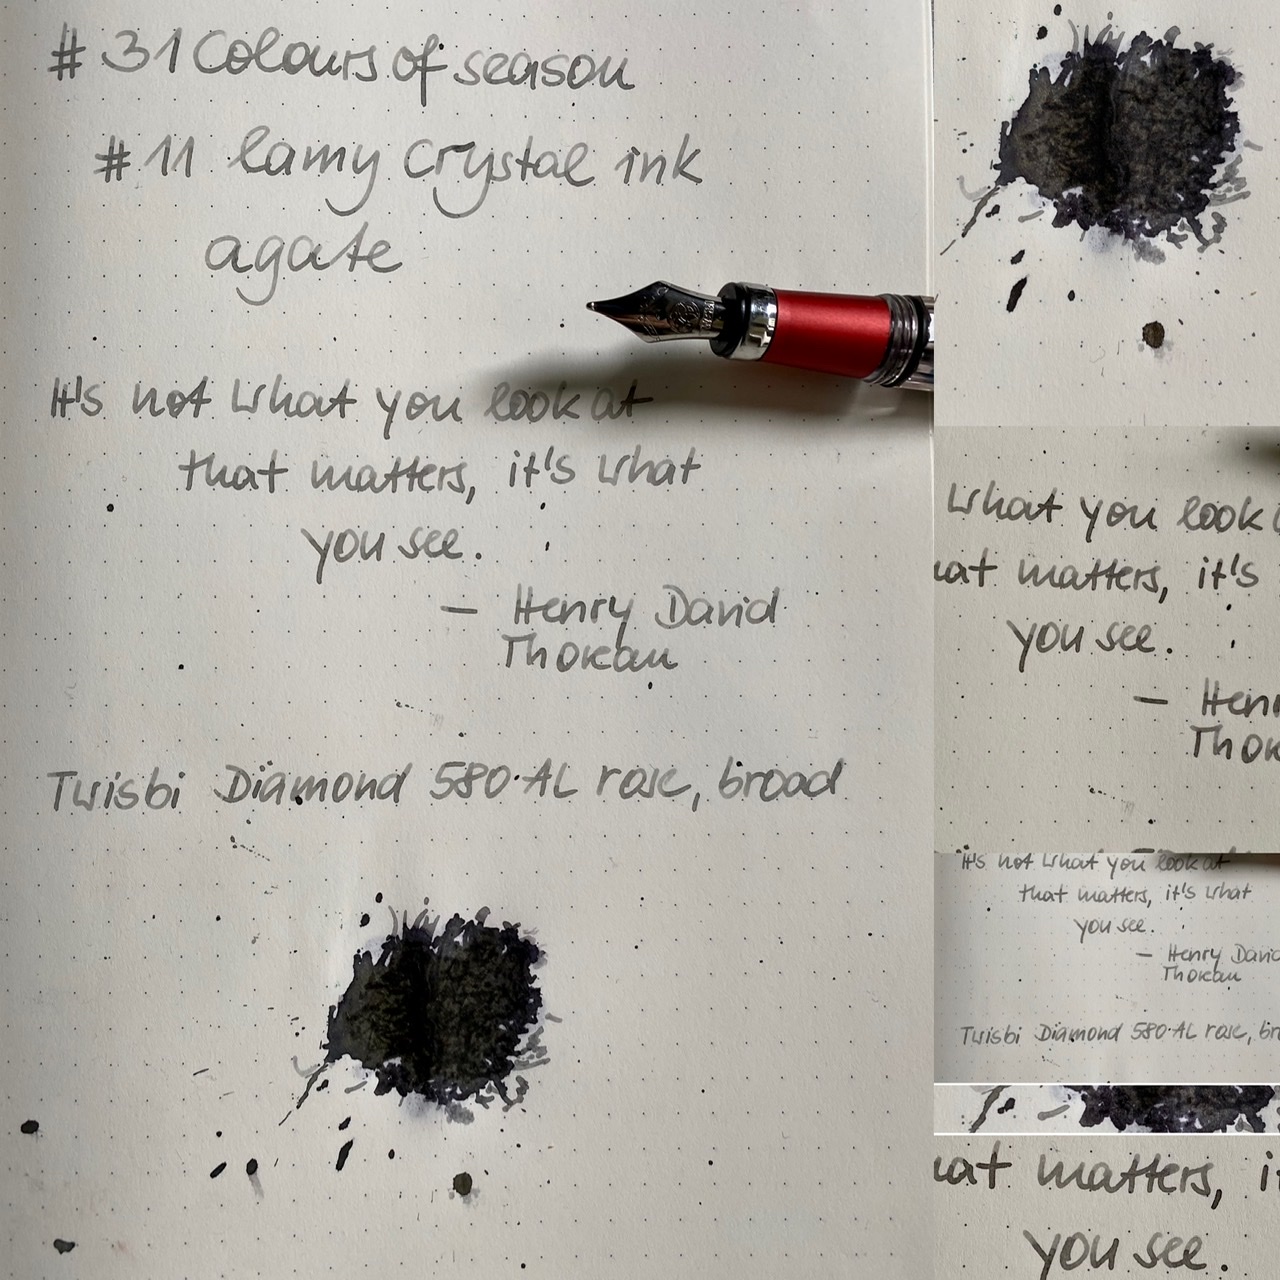 # 31 Colours of season
# 11 lamy Crystal ink
agate
It's not what you look at
that matters, it's what
you see.
— Henry David
Thoreau
Twisbi Diamond 580·AL rose, broad
what you look
hat matters, it's
you see.
— Henr
Thor
It's not what you look at
that matters, it's what
you see.
— Henry David
Thoreau
Twisbi Diamond 580·AL rose, br
hat matters, it
you see.